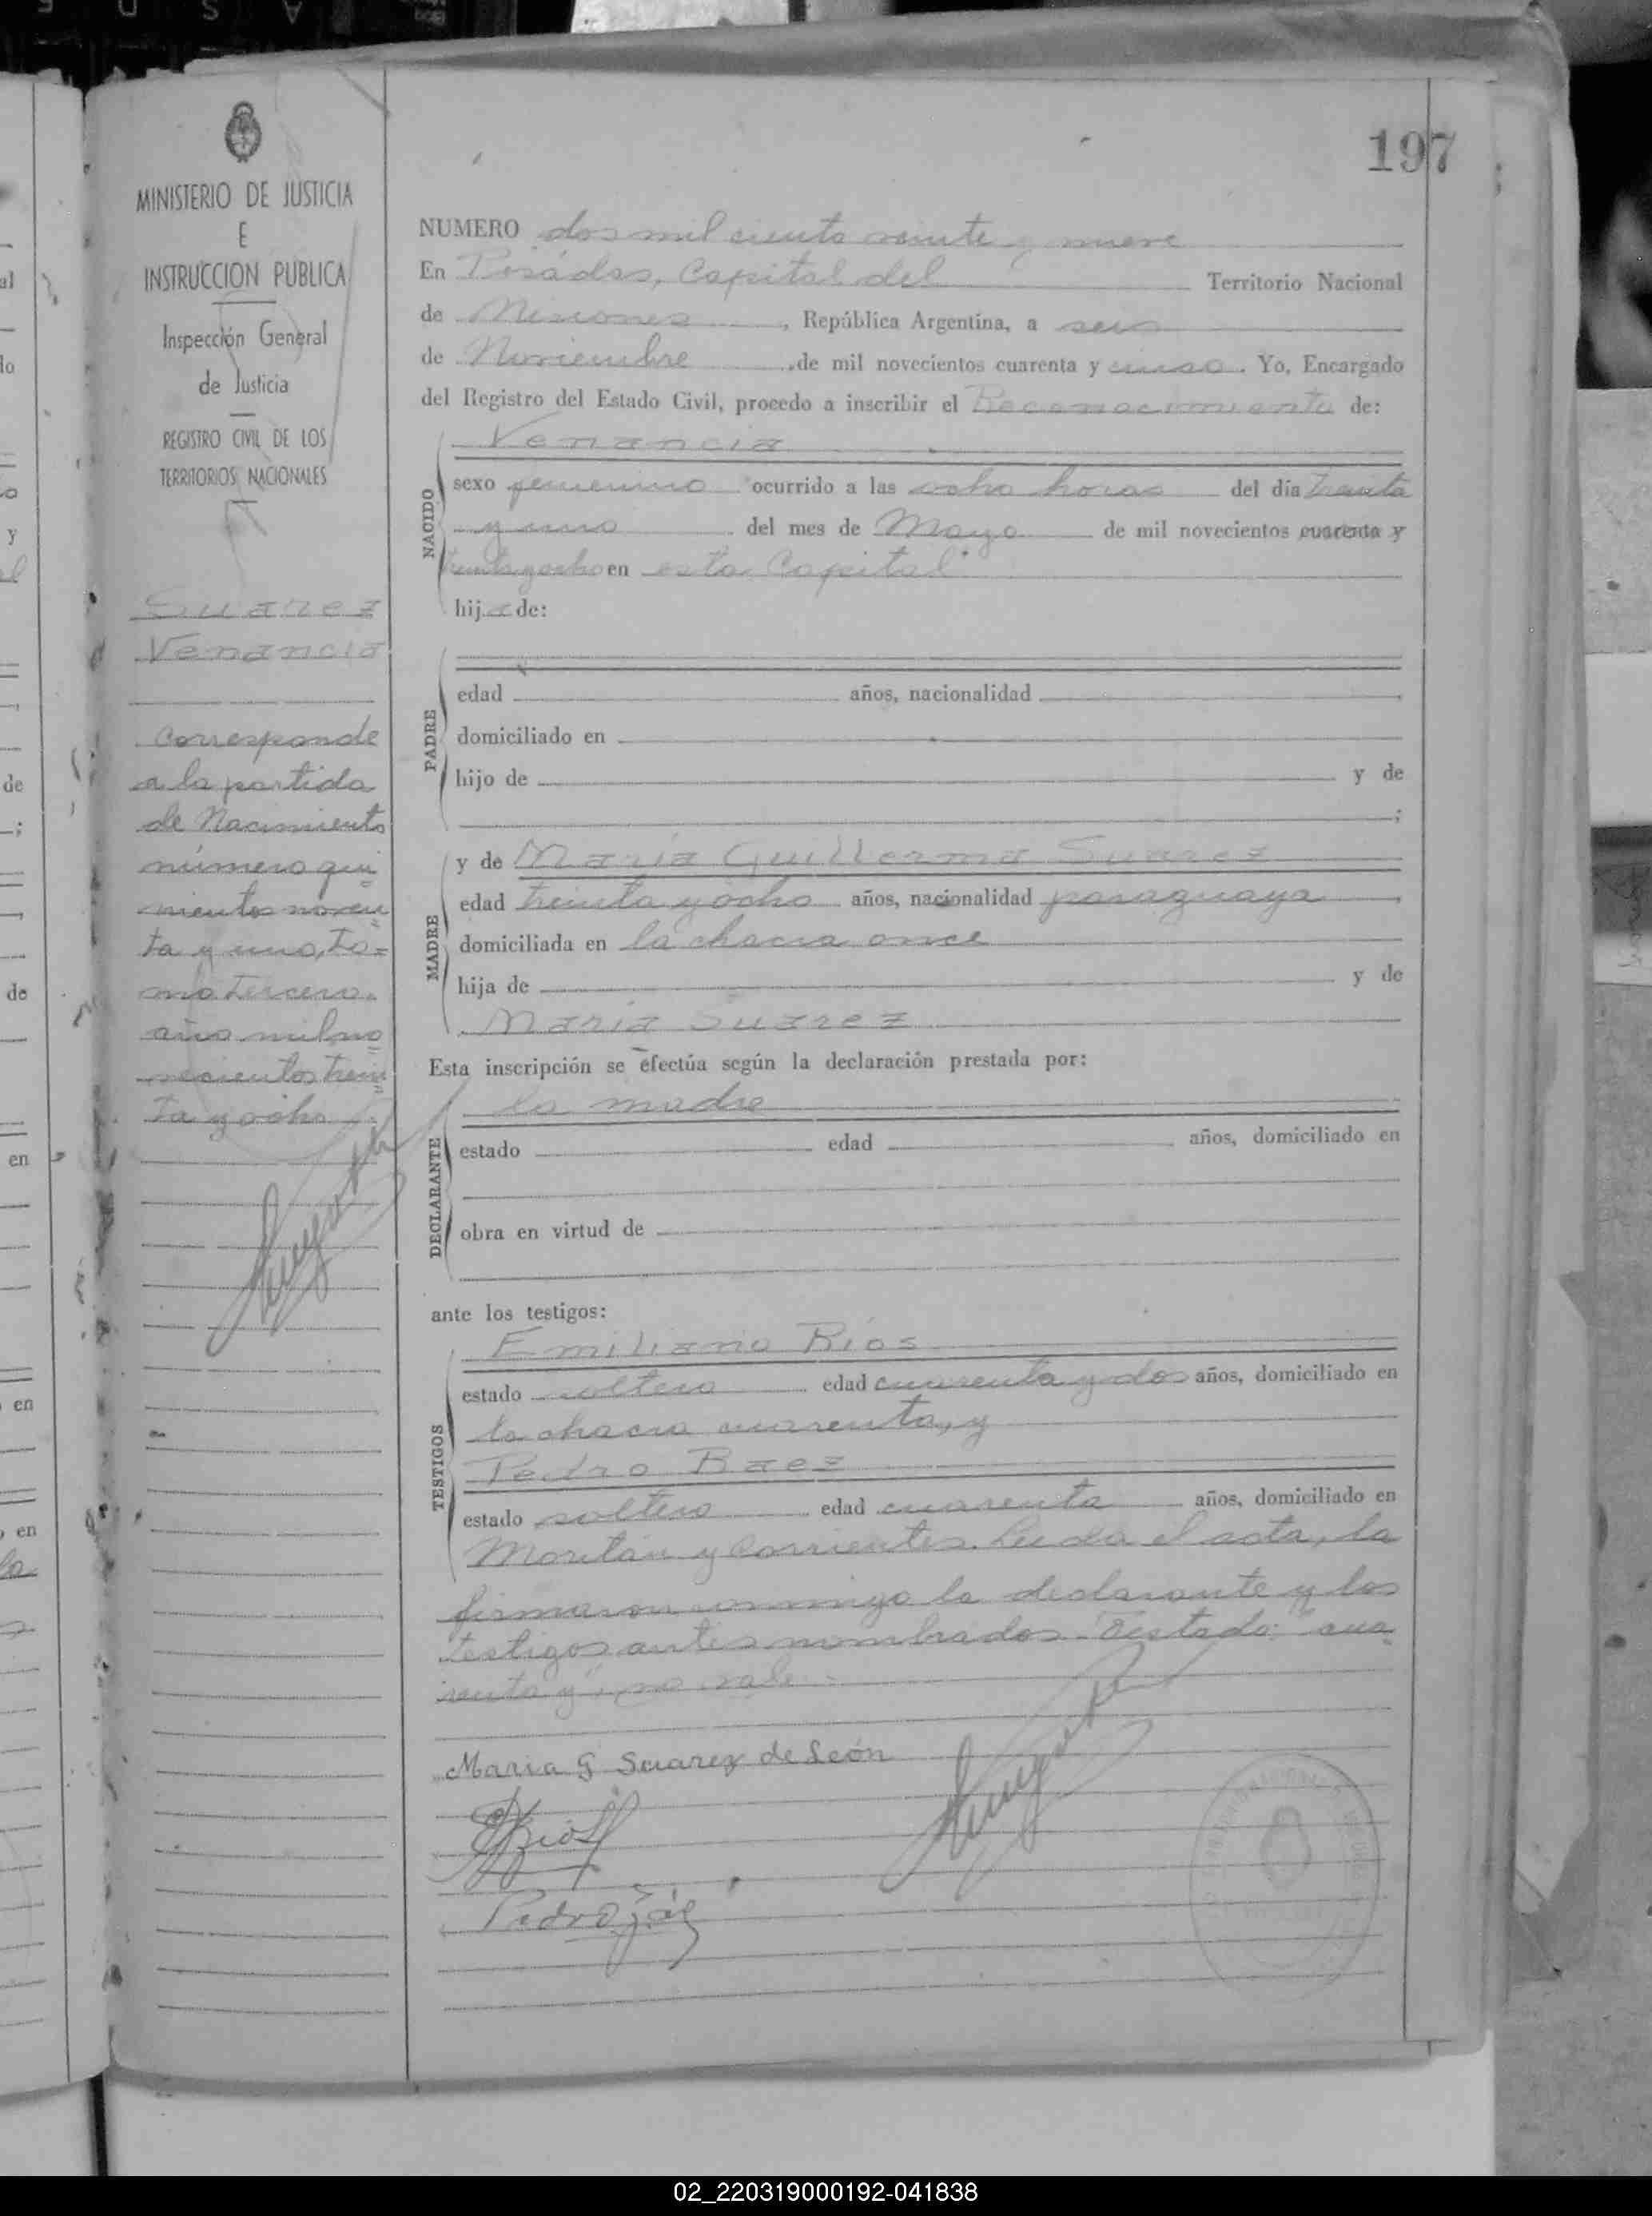 197
MINISTERIO DE JUSTICIA
E
INSTRUCCION PUBLICA
Inspección General
de Justicia
REGISTRO CIVIL DE LOS
TERRITORIOS NACIONALES
Suarez
Venancia
Corresponde
a la partida
de Nacimiento
número qui=
nientos noven=
ta y uno, to=
mo tercero.
año mil no=
vecientos trein=
ta y ocho
NUMERO dos mil ciento veinte y nueve
En Posadas, Capital del Territorio Nacional
de Misiones, República Argentina, a seis
de Noviembre de mil novecientos cuarenta y cinco. Yo, Encargado
del Registro del Estado Civil, procedo a inscribir el Reconocimiento de:
NACIDO
Venancia
sexo femenino ocurrido a las ocho horas del día treinta
y uno del mes de Mayo de mil novecientos cuarenta y
treinta y ocho en esta Capital
hija de:
PADRE
edad años, nacionalidad
domiciliado en
hijo de y de
;
MADRE
y de María Guillerma Suarez
edad treinta y ocho años, nacionalidad paraguaya
domiciliada en la chacra once
hija de y de
María Suarez
Esta inscripción se efectúa según la declaración prestada por:
DECLARANTE
la madre
estado edad años, domiciliado en
obra en virtud de
ante los testigos:
TESTIGOS
Emiliano Ríos
estado soltero edad cuarenta y dos años, domiciliado en
la chacra cuarenta, y
Pedro Baez
estado soltero edad cuarenta años, domiciliado en
Moritán y Corrientes. Leida el acta, la
firmaron conmigo la declarante y los
testigos antes nombrados. Testado: "cua=
renta y", no vale.=
Maria G Suarez de León
Pedro
02_220319000192-041838